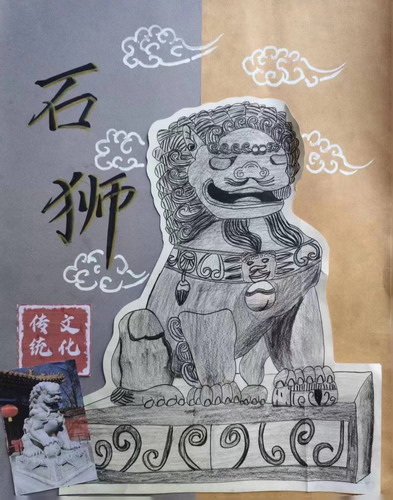 石狮
传统
文化